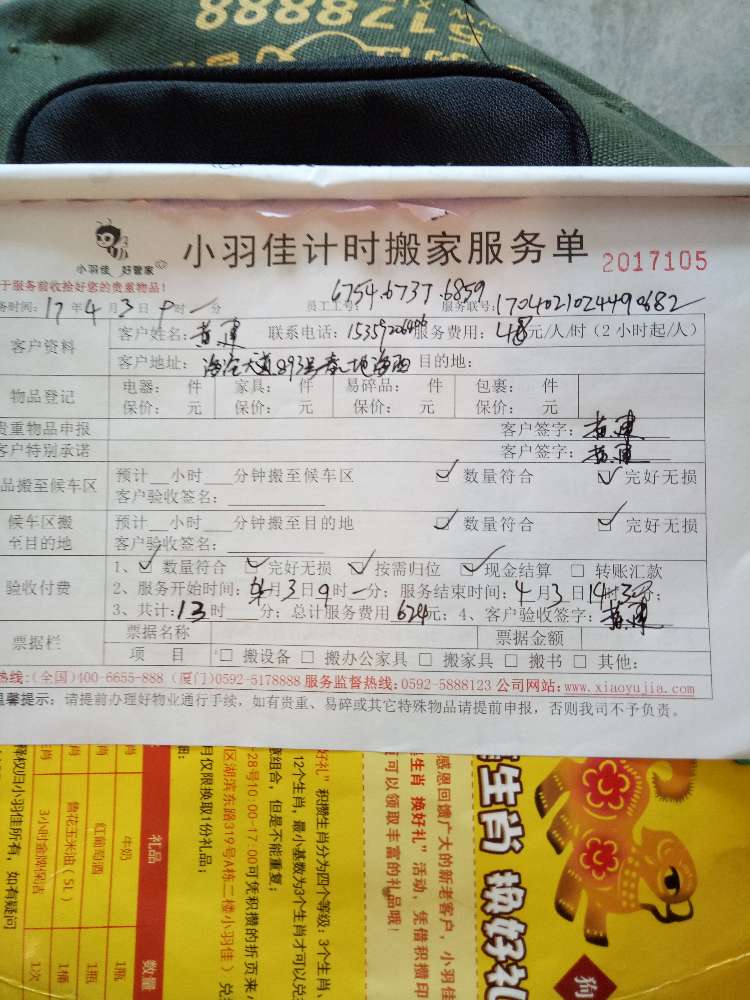 5178888
小羽佳 好管家
小羽佳计时搬家服务单
2017105
于服务前收拾好您的贵重物品!
务时间: 17 年 4 月 3 日 9 时 一 分 员工工号: 6754.6737.6859 服务联号: 1704021024490682
客户资料 客户姓名: 黄建 联系电话: 服务费用: 48 元/人/时 (2 小时起/人)
客户地址: 目的地:
物品登记 电器: 件 家具: 件 易碎品: 件 包裹: 件
保价: 元 保价: 元 保价: 元 保价: 元
贵重物品申报 客户签字: 黄建
客户特别承诺 客户签字: 黄建
品搬至候车区 预计__小时___分钟搬至候车区 ☑ 数量符合 ☑ 完好无损
客户验收签名:
候车区搬至目的地 预计__小时___分钟搬至目的地 ☑ 数量符合 ☑ 完好无损
客户验收签名:
验收付费 1、☑ 数量符合 ☑ 完好无损 ☑ 按需归位 ☑ 现金结算 □ 转账汇款
2、服务开始时间: 4 月 3 日 9 时 一 分; 服务结束时间: 4 月 3 日 14 时 30 分;
3、共计: 13 时___分; 总计服务费用 624 元; 4、客户验收签字: 黄建
票据栏 票据名称 票据金额
项 目 □ 搬设备 □ 搬办公家具 □ 搬家具 □ 搬书 □ 其他:
热线:(全国)400-6655-888 (厦门)0592-5178888 服务监督热线:0592-5888123 公司网站:www.xiaoyujia.com
温馨提示: 请提前办理好物业通行手续, 如有贵重、易碎或其它特殊物品请提前申报, 否则我司不予负责。
生肖 换好礼
狗
感恩回馈广大的新老客户, 小羽佳
生肖 换好礼" 活动, 凭借积攒印
可以领取丰富的礼品哦!
好礼" 积攒生肖分为四个等级: 3个生肖、
12个生肖, 最小基数为3个生肖才可以兑
意组合, 但是不能重复;
-28号10:00-17:00可凭积攒的折页来
区湖滨东路319号A栋二楼小羽佳) 兑
月仅限换取1份礼品;
礼品 数量
牛奶 1瓶
红葡萄酒 1瓶
鲁花玉米油 (5L) 1桶
3小时金牌保洁 1次
释权归小羽佳所有, 如有疑问